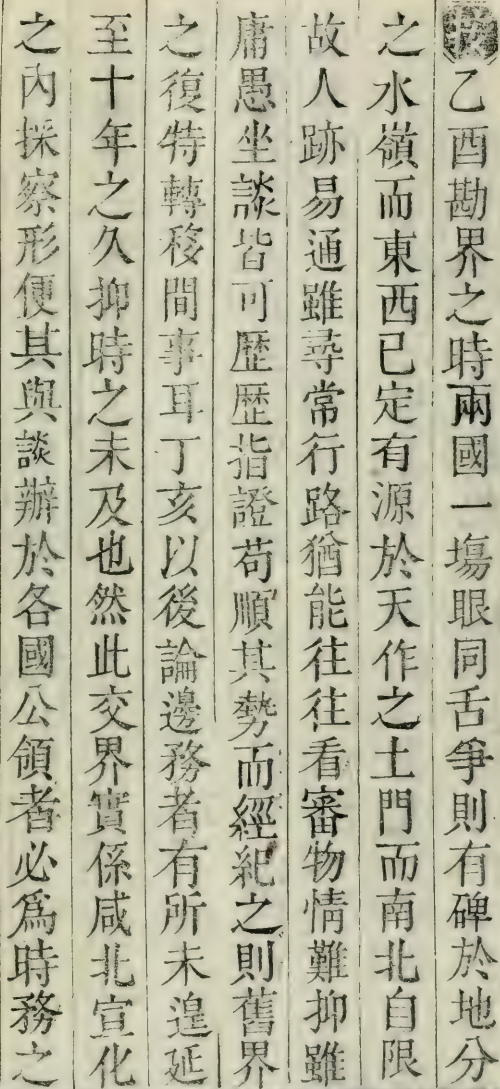 乙酉勘界之時兩國一塲眼同舌爭則有碑於地分
之水嶺而東西已定有源於天作之土門而南北自限
故人跡易通雖尋常行路猶能往往看審物情難抑雖
庸愚坐談皆可歷歷指證苟順其勢而經紀之則舊界
之復特轉移間事耳丁亥以後論邊務者有所未遑延
至十年之久抑時之未及也然此交界實係咸北宣化
之內採察形便其與談辦於各國公領者必爲時務之